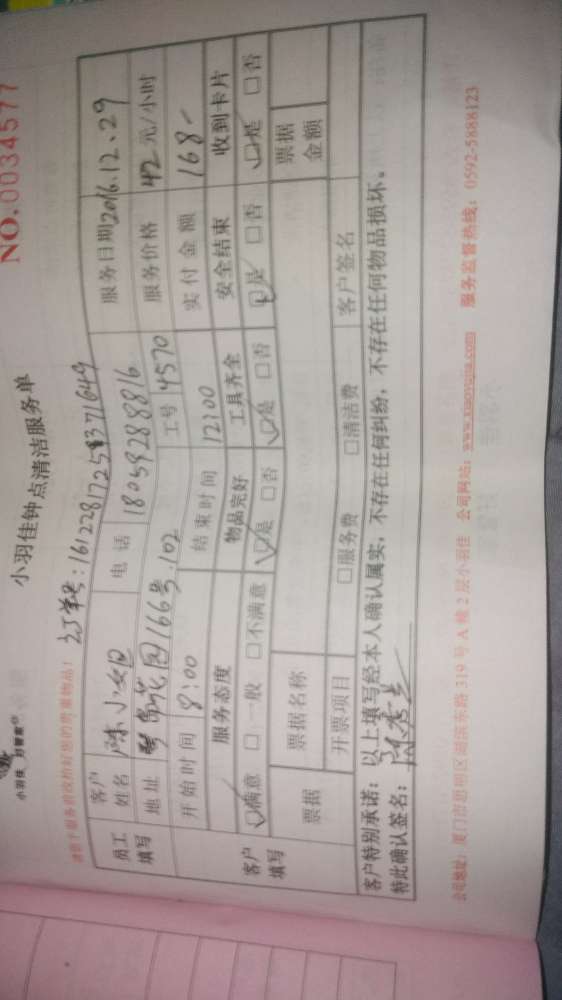 小羽佳 好管家
小羽佳钟点清洁服务单
NO.0034577
请您于服务前收拾好您的贵重物品!
订单号:16122817258371649
员工填写
客户姓名 陈小姐 电话 18059288816 服务日期 2016.12.29
地址 花园166号.102 工号 4570 服务价格 42元/小时
开始时间 8:00 结束时间 12:00 实付金额 168-
客户填写
服务态度 物品完好 工具齐全 安全结束 收到卡片
☑满意 □一般 □不满意 ☑是 □否 ☑是 □否 ☑是 □否 ☑是 □否
票据 票据名称 票据金额
开票项目 □服务费 □清洁费 客户签名
客户特别承诺:以上填写经本人确认属实,不存在任何纠纷,不存在任何物品损坏。
特此确认签名:
公司地址:厦门市思明区湖滨东路319号A幢2层小羽佳 公司网站:www.xiaoyujia.com 服务监督热线:0592-5888123